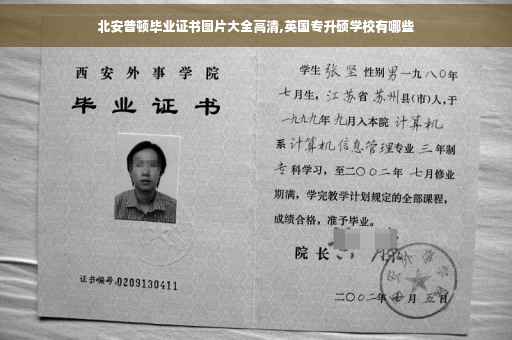 北安普顿毕业证书图片大全高清,英国专升硕学校有哪些
西安外事学院
毕业证书
证书编号:0209130411
学生 张坚 性别 男 一九八〇年
七月生, 江苏省 苏州县(市)人,于
一九九九年 九月入本院 计算机
系 计算机信息管理专业 三 年制
专科学习, 至二〇〇二年 七月修业
期满, 学完教学计划规定的全部课程,
成绩合格, 准予毕业。
院长
二〇〇二年 月 五日